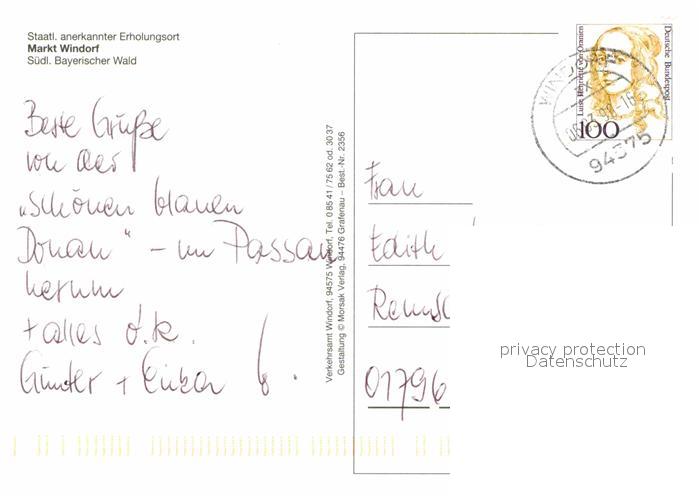 Staatl. anerkannter Erholungsort
Markt Windorf
Südl. Bayerischer Wald
Beste Grüße
von der
„schönen blauen
Donau“ – um Passau
herum
+ alles o.k.
Günter + Erika
Verkehrsamt Windorf, 94575 Windorf, Tel. 0 85 41 / 75 62 od. 30 37
Gestaltung © Morsak Verlag, 94476 Grafenau – Best.-Nr. 2356
Luise Henriette von Oranien
Deutsche Bundespost
100
WINDORF
94575
Frau
Edith
01796
privacy protection
Datenschutz